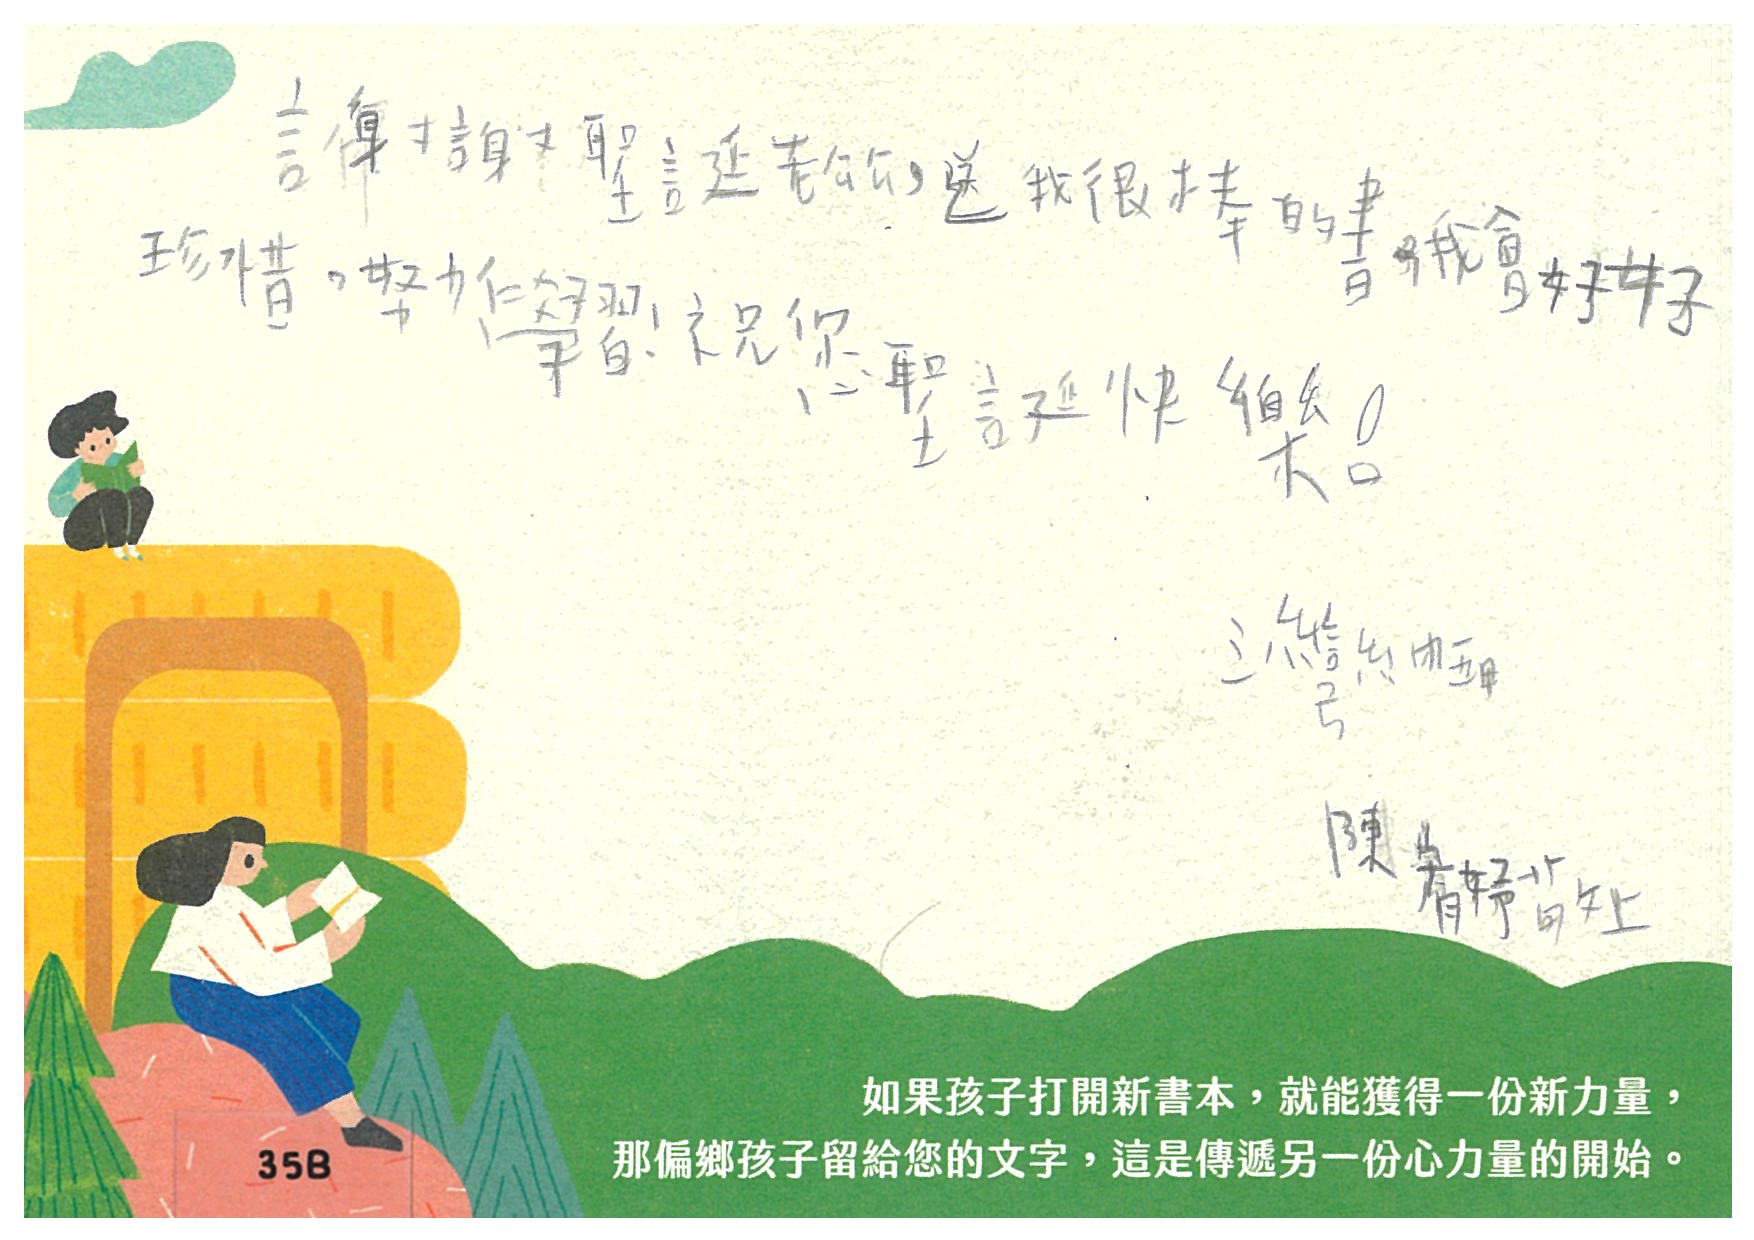 謝謝聖誕老公公，送我很棒的書，我會好好
珍惜，努力作學習！祝您聖誕快樂！
陳 妤 上
如果孩子打開新書本，就能獲得一份新力量，
那偏鄉孩子留給您的文字，這是傳遞另一份心力量的開始。
35B